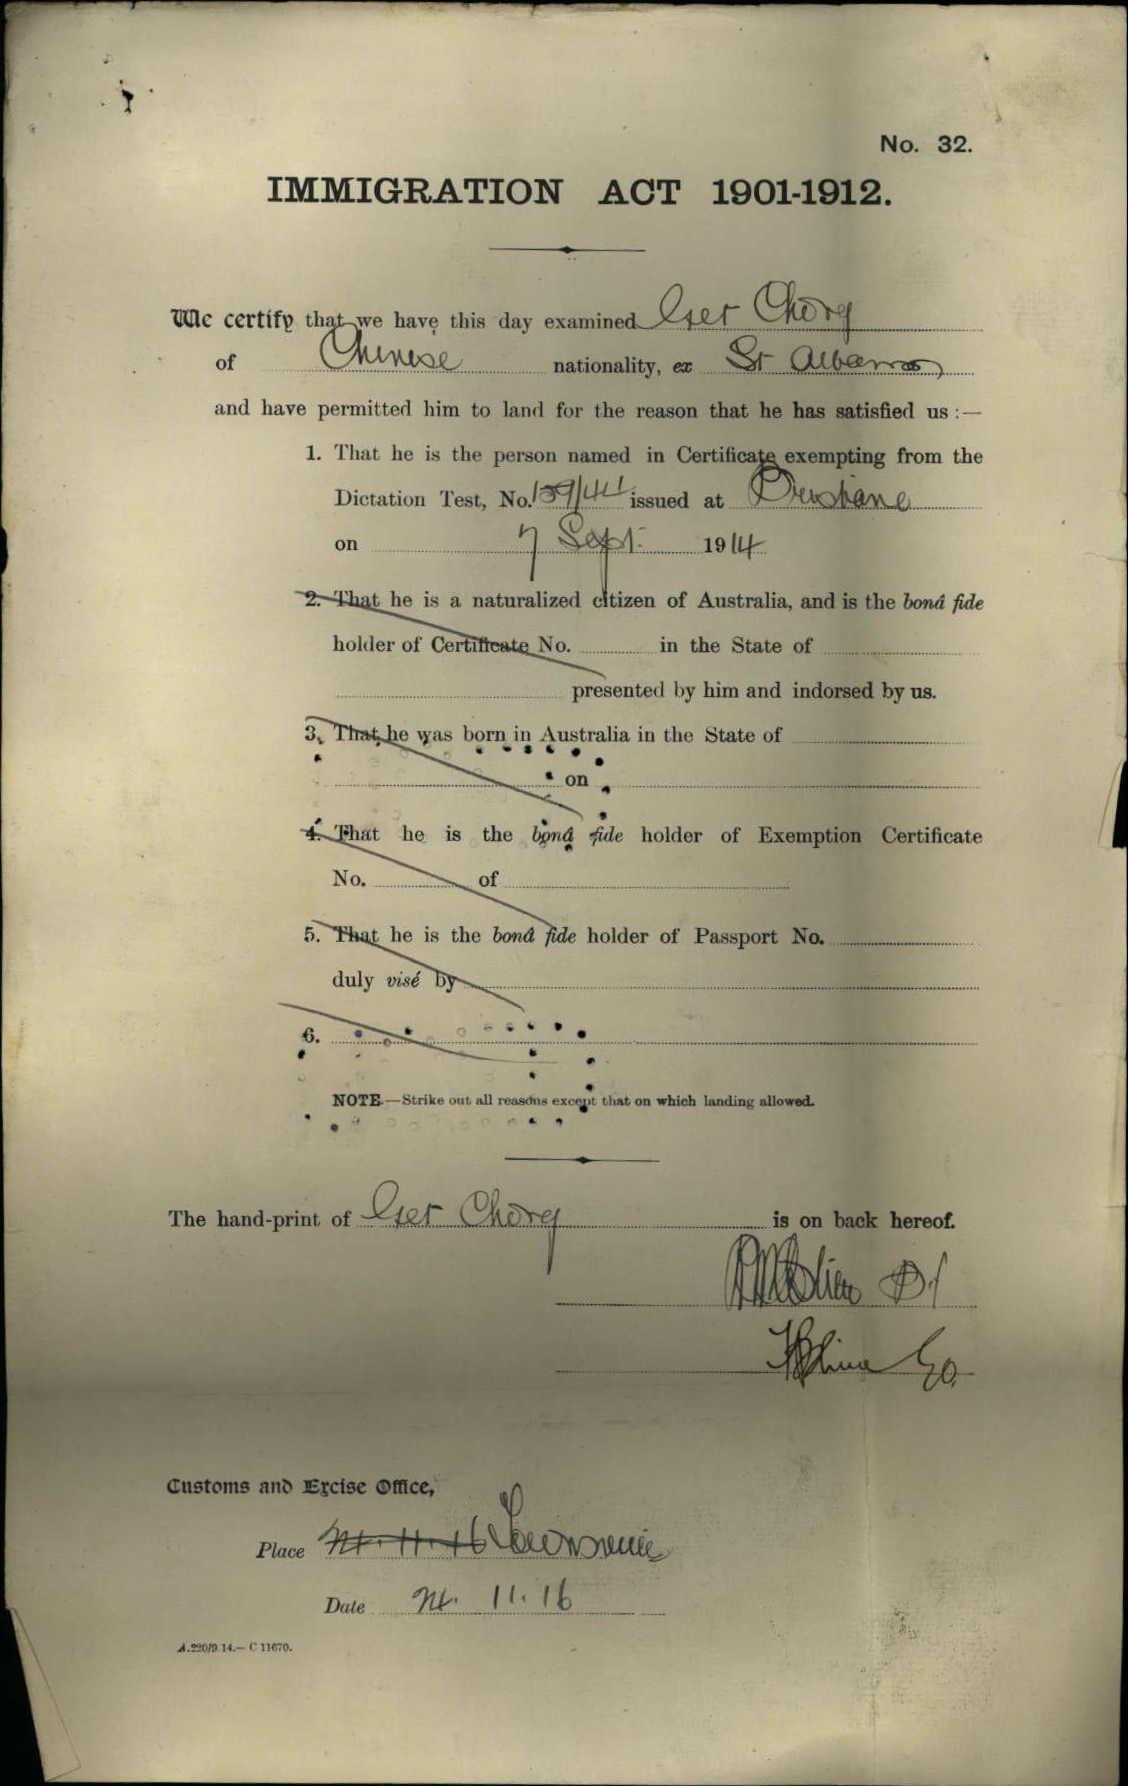 No. 32.
IMMIGRATION ACT 1901-1912.
We certify that we have this day examined Get Chong
of Chinese nationality, ex St Albans
and have permitted him to land for the reason that he has satisfied us :—
1. That he is the person named in Certificate exempting from the
Dictation Test, No. 159/44 issued at Brisbane
on 7 Sept. 1914
2. That he is a naturalized citizen of Australia, and is the bonâ fide
holder of Certificate No. in the State of
presented by him and indorsed by us.
3. That he was born in Australia in the State of
on
4. That he is the bonâ fide holder of Exemption Certificate
No. of
5. That he is the bonâ fide holder of Passport No.
duly visé by
6.
NOTE.—Strike out all reasons except that on which landing allowed.
The hand-print of Get Chong is on back hereof.
Customs and Excise Office,
Place Townsville
Date 11.16
A.220/9.14.— C 11670.